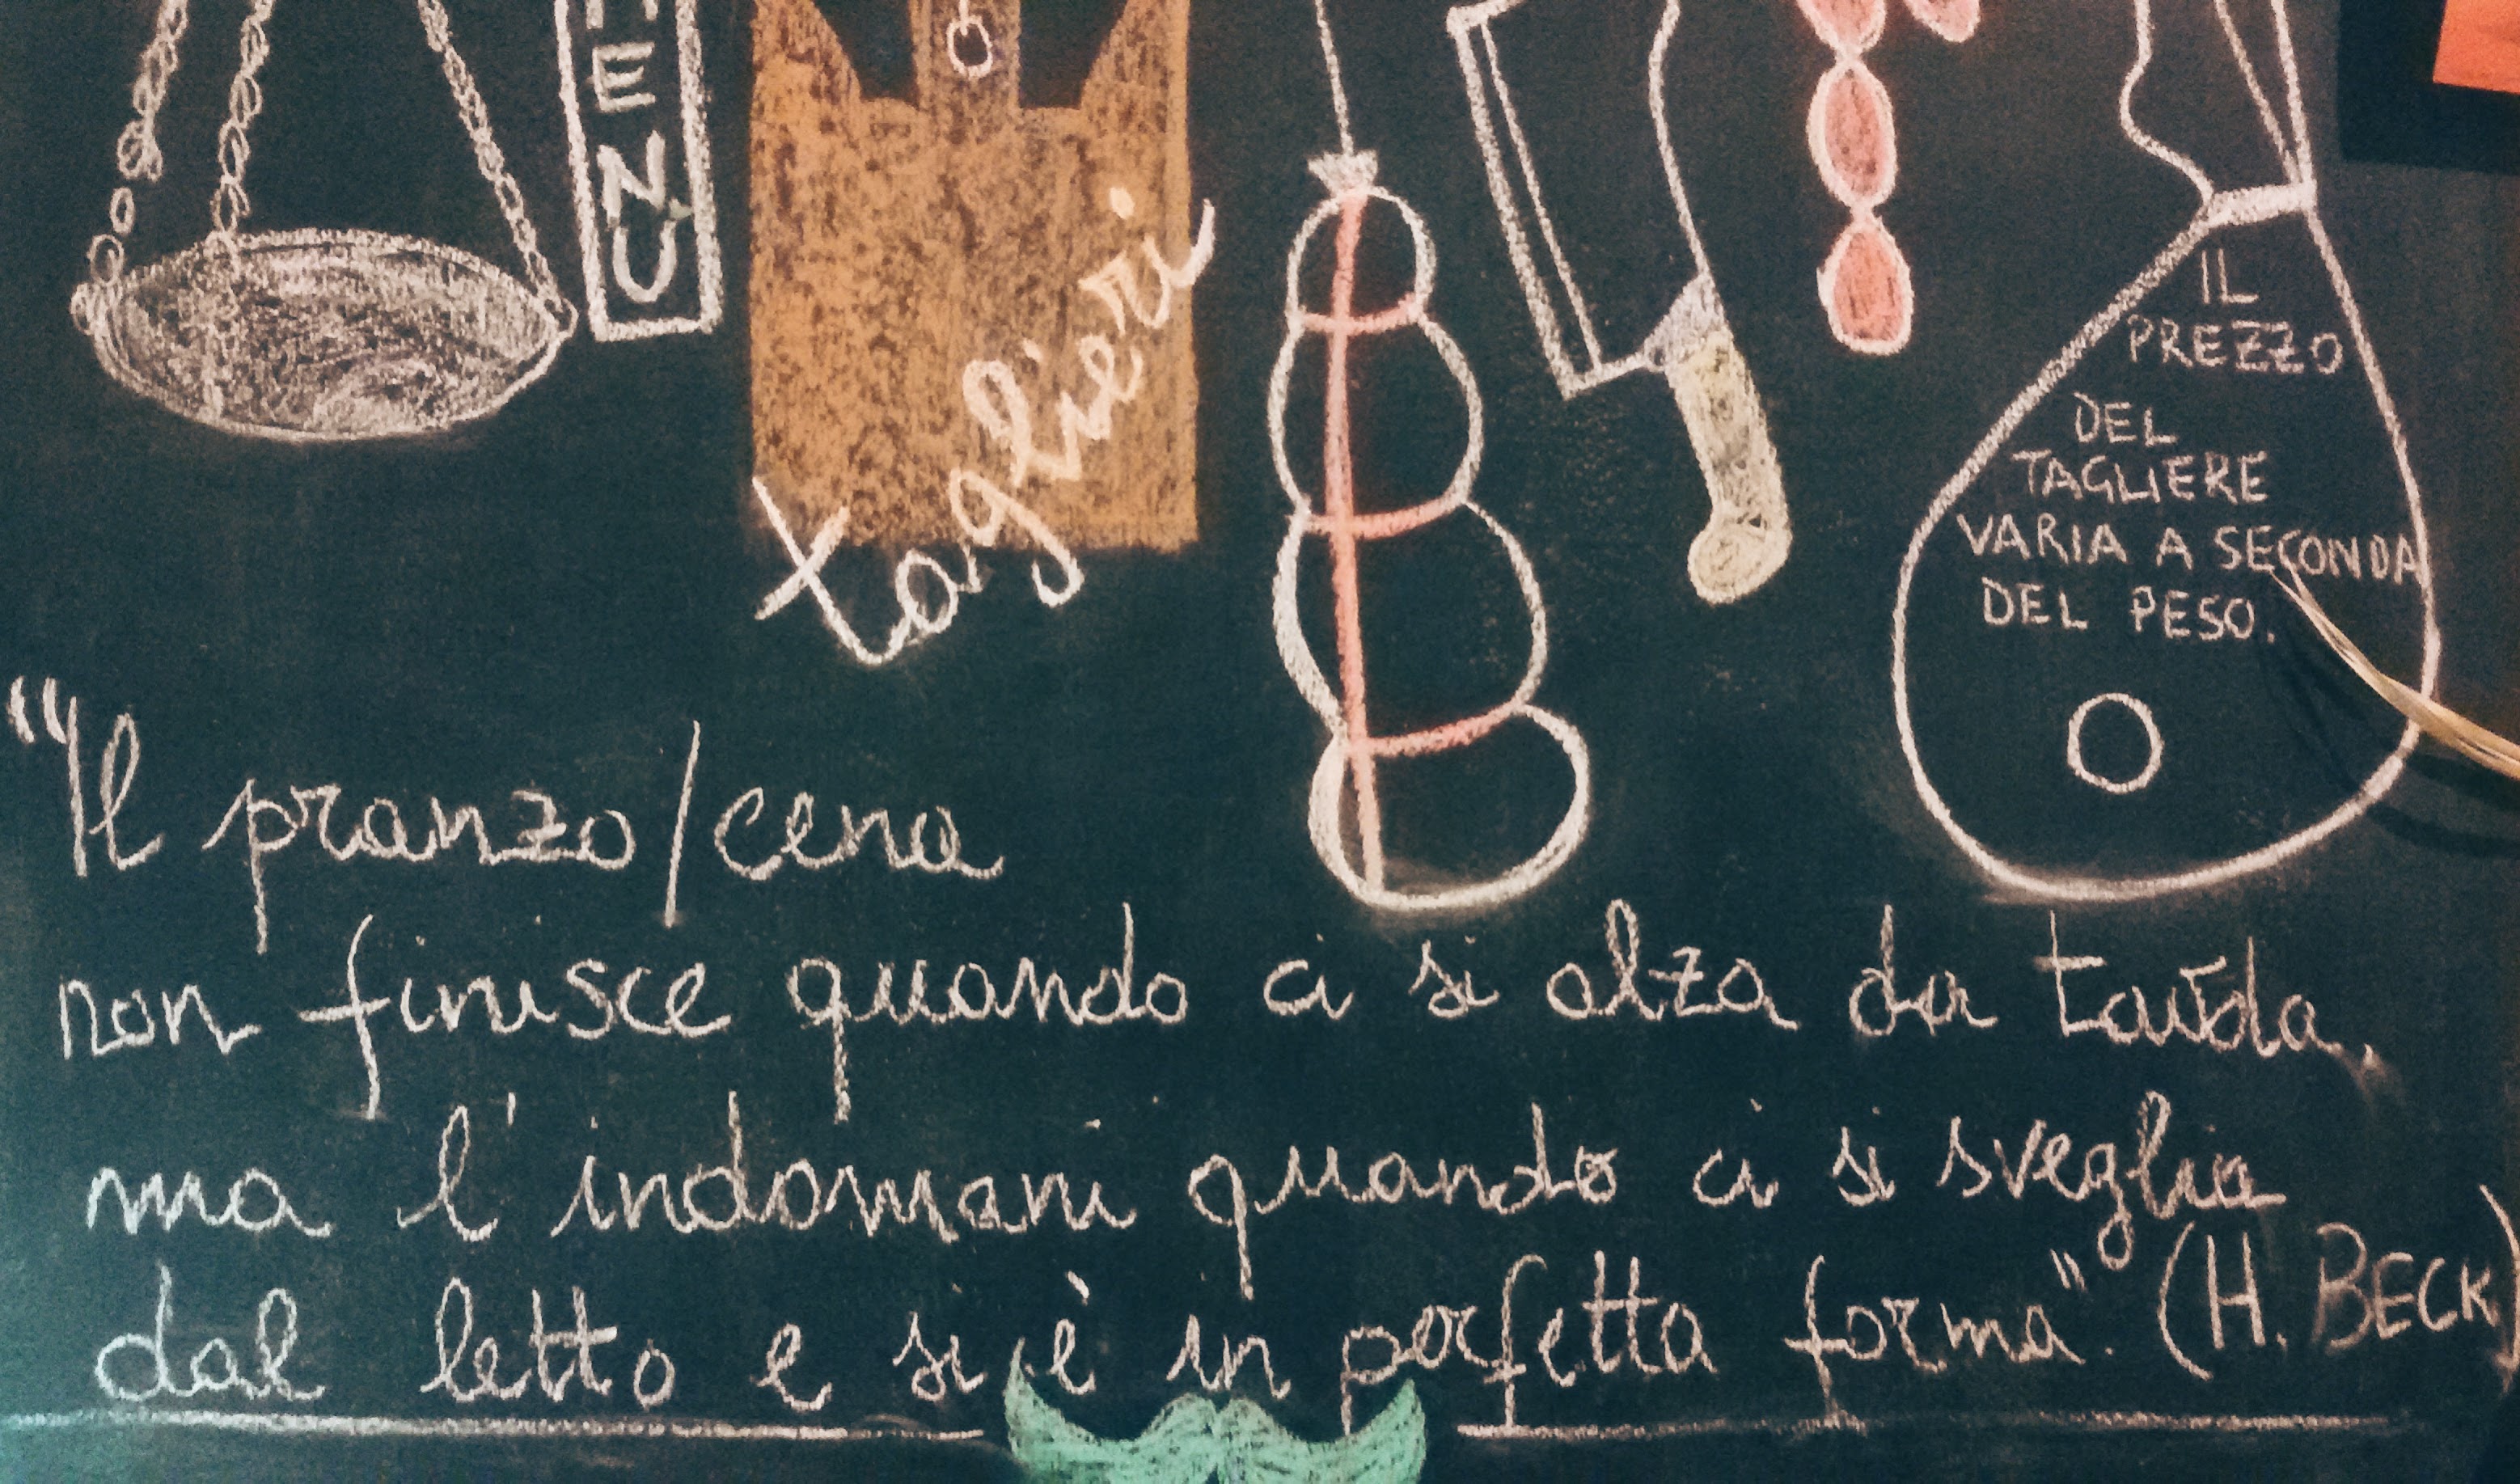 MENÙ
taglieri
IL
PREZZO
DEL
TAGLIERE
VARIA A SECONDA
DEL PESO.
"Il pranzo/cena
non finisce quando ci si alza da tavola,
ma l'indomani quando ci si sveglia
dal letto e si è in perfetta forma". (H. BECK)